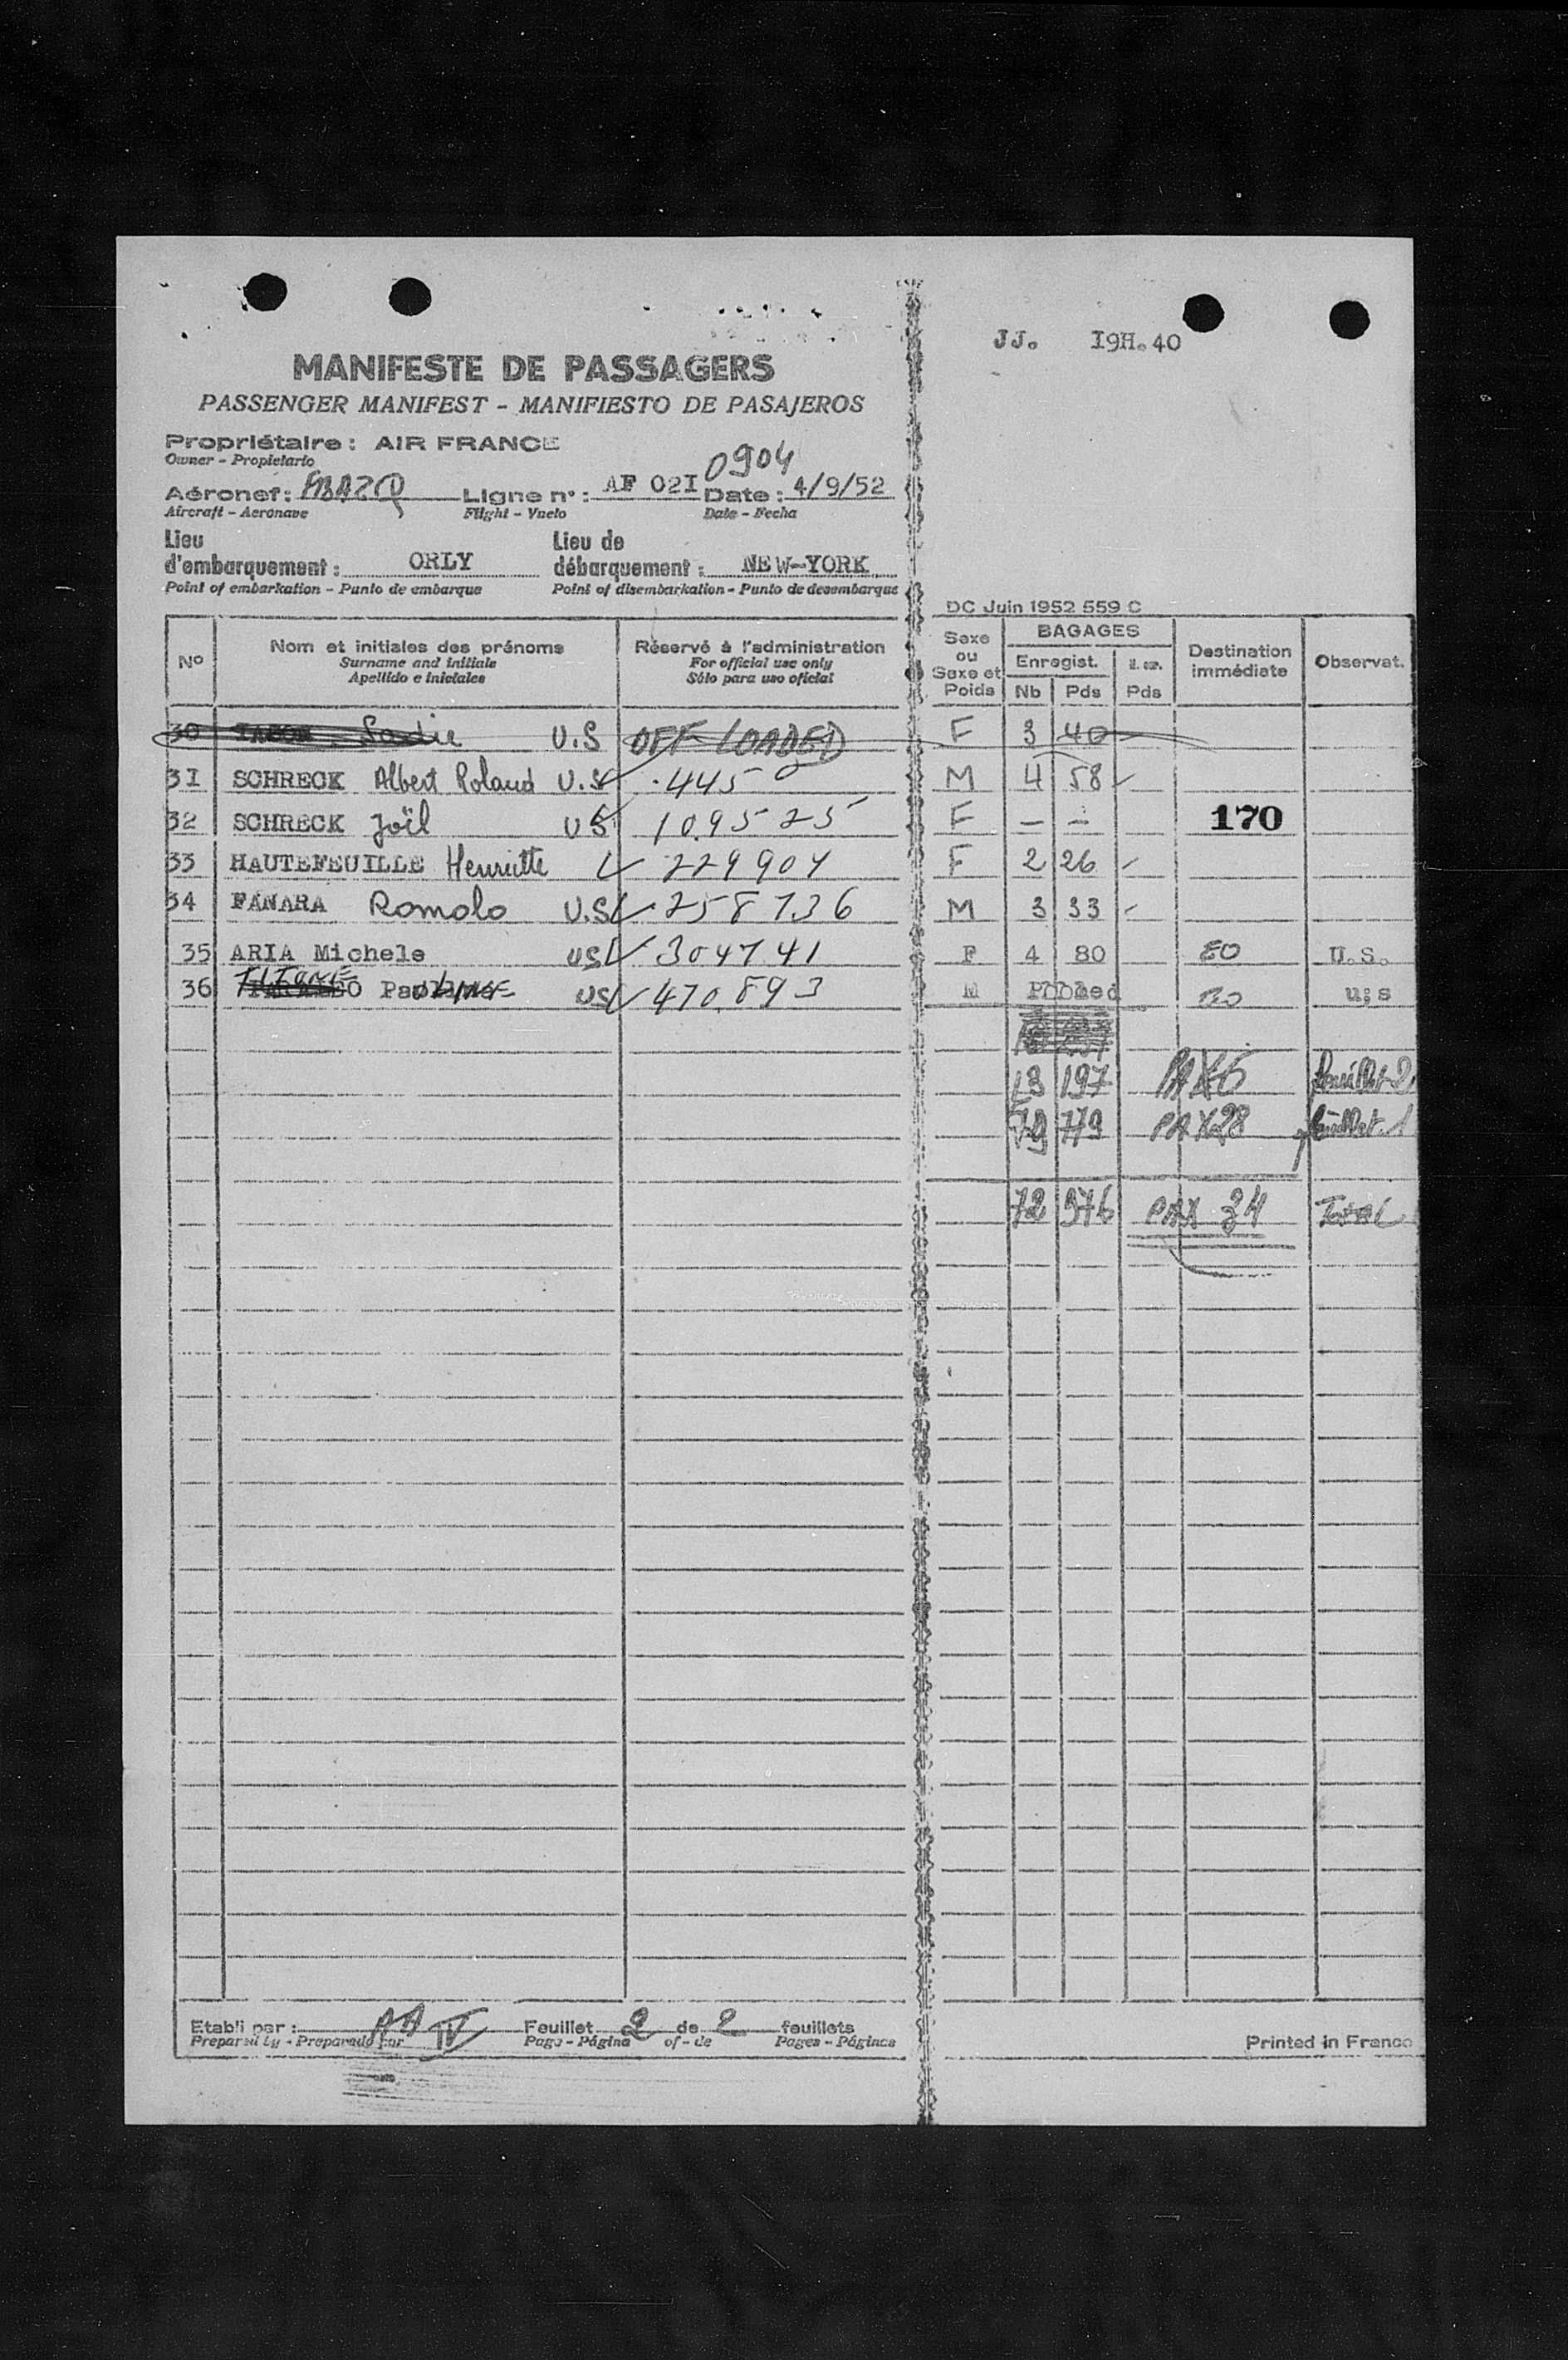 JJ. I9H.40
MANIFESTE DE PASSAGERS
PASSENGER MANIFEST - MANIFIESTO DE PASAJEROS
Propriétaire : AIR FRANCE
Owner - Propietario
0904
Aéronef : FBAZQ Ligne n° : AF 02I Date : 4/9/52
Aircraft - Aeronave Flight - Vuelo Date - Fecha
Lieu d'embarquement : ORLY Lieu de débarquement : NEW-YORK
Point of embarkation - Punto de embarque Point of disembarkation - Punto de desembarque
DC Juin 1952 559 C
N° Nom et initiales des prénoms Réservé à l'administration Sexe ou Sexe et Poids BAGAGES Enregist. Nb Pds Pds Destination immédiate Observat.
Surname and initials For official use only
Apellido e iniciales Sólo para uso oficial
30 Sadie U.S OFF LOADED F 3 40
3I SCHRECK Albert Roland U.S 445 M 4 58
32 SCHRECK Joël US 109525 F - - 170
33 HAUTEFEUILLE Henriette 229904 F 2 26
34 FANARA Romolo U.S 258736 M 3 33
35 ARIA Michele US 304741 F 4 80 U.S.
36 US 470893 M Pooled u;s
13 197 PAX 6 feuillet 2
779 PAX 28 feuillet 1
72 976 PAX 34 TOTAL
Etabli par : AA IV Feuillet 2 de 2 feuillets
Prepared by - Preparado por Page - Página of - de Pages - Páginas
Printed in France